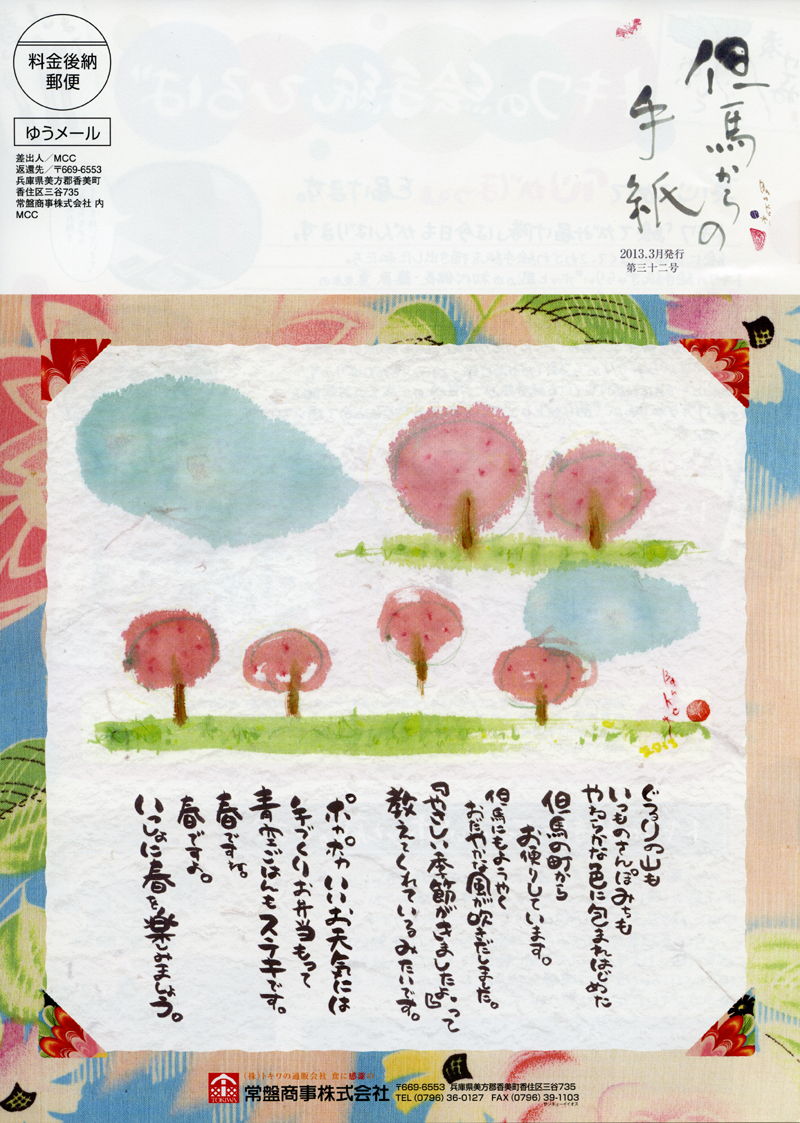 料金後納
郵便
ゆうメール
差出人/MCC
返還先/〒669-6553
兵庫県美方郡香美町
香住区三谷735
常盤商事株式会社 内
MCC
但馬からの
手紙
2013.3月発行
第三十二号
2013
ぐるりの山も
いつものさんぽみちも
やわらかな色に包まれはじめた
但馬の町から
お便りしています。
但馬にもようやく
おだやかな風が吹きだしました。
『やさしい季節がきましたよ。』って
教えてくれているみたいです。
ポカポカいいお天気には
手づくりお弁当もって
青空ごはんもステキです。
春ですね。
春ですよ。
いっしょに春を楽しみましょう。
(株)トキワの通販会社 食に感謝の
TOKIWA
常盤商事株式会社
〒669-6553 兵庫県美方郡香美町香住区三谷735
TEL (0796) 36-0127 FAX (0796) 39-1103
サンキューイイオス